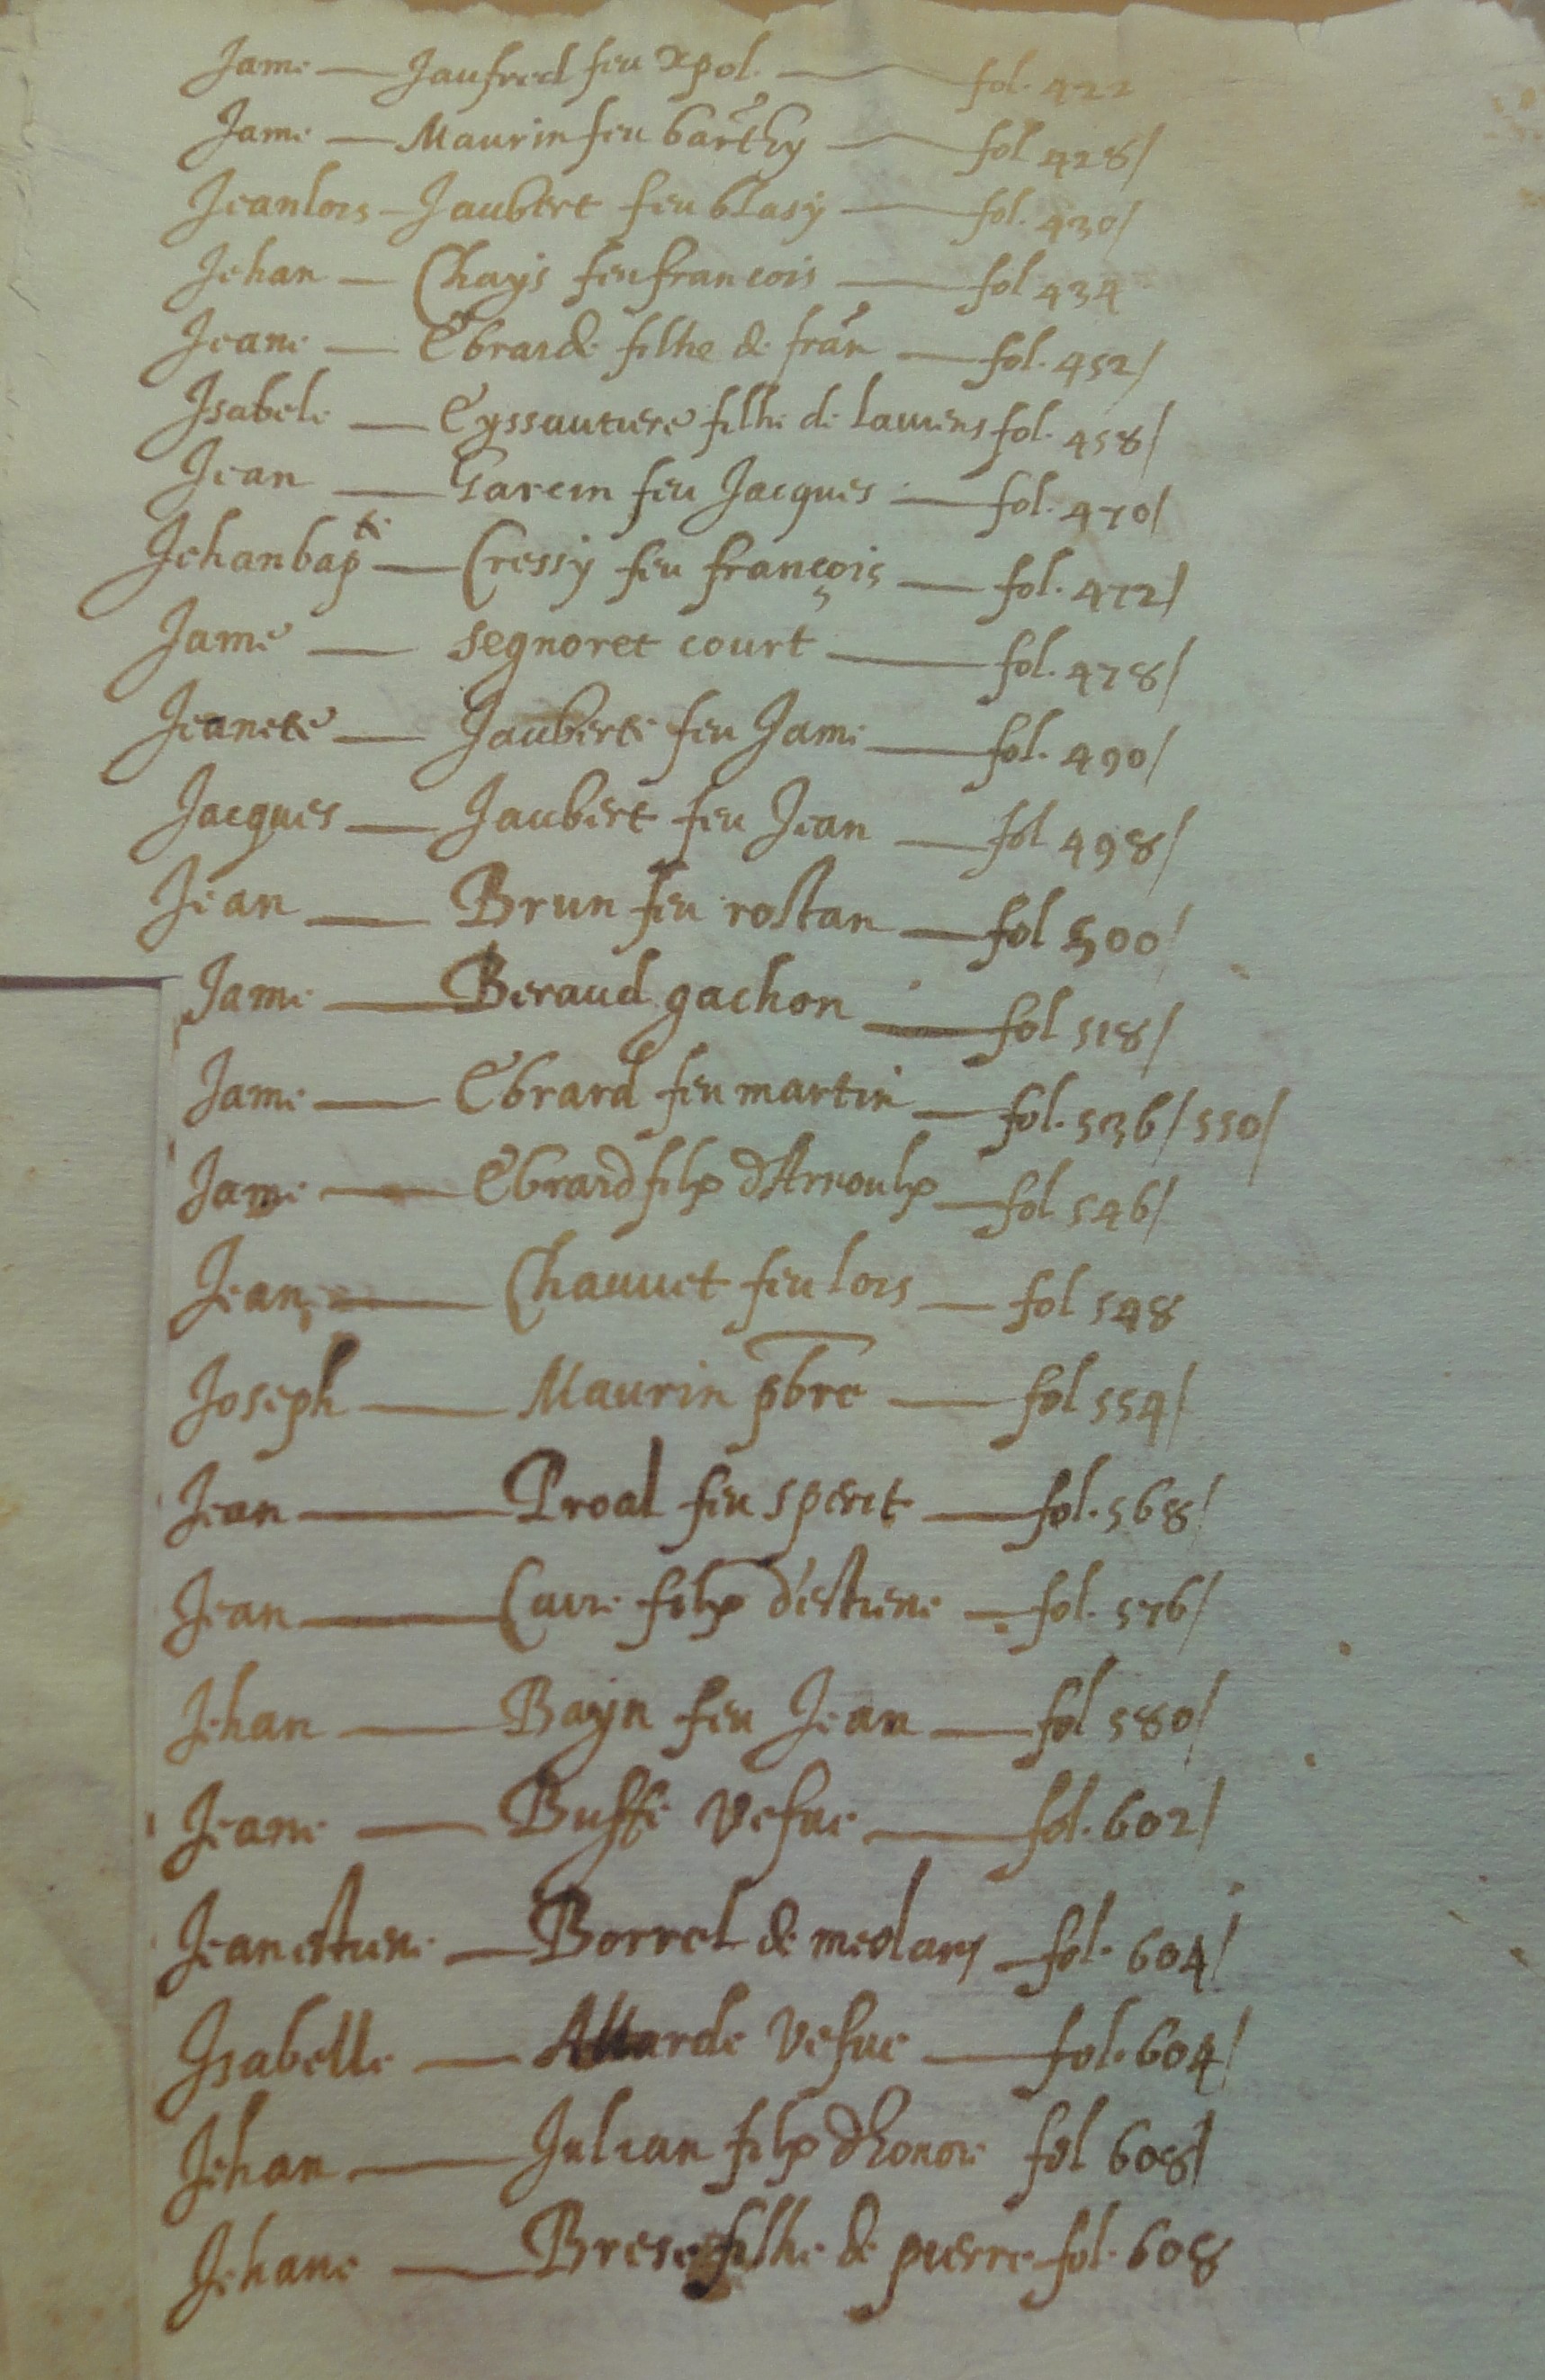 Jame — Jaufred feu xpol. — fol. 422
Jame — Maurin feu barthy — fol 428/
Jeanlois — Jaubert feu blasy — fol. 430/
Jehan — Chays feu francois — fol 434
Jeane — Ebrarde filhe de fran — fol. 452/
Isabele — Eyssautiere filhe de laurens fol. 458/
Jean — Garcin feu Jacques — fol. 470/
Jehanbapte — Cressy feu françois — fol. 472/
Jame — segnoret court — fol. 478/
Jeanete — Jauberte feu Jame — fol. 490/
Jacques — Jaubert feu Jean — fol 498/
Jean — Brun feu rostan — fol 500/
Jame — Beraud gachon — fol 518/
Jame — Ebrard feu martin — fol. 536/ 550/
Jame — Ebrard filz d'Arnoulx — fol 546/
Jean — Chauvet feu lois — fol 548
Joseph — Maurin pbre — fol 554/
Jean — Proal feu sperit — fol. 568/
Jean — Caire filz d'estiene — fol. 576/
Jehan — Bayn feu Jean — fol 580/
Jeane — Buffe vefue — fol. 602/
Jeanestiene — Borrel de meolans — fol. 604/
Isabelle — Allarde vefue — fol. 604/
Jehan — Julian filz d'honore fol 608/
Jehane — Brese filhe de pierre fol. 608